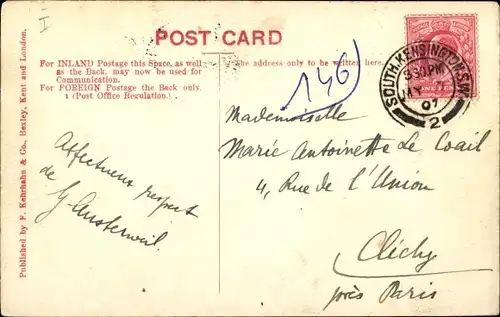 I
POST CARD
For INLAND Postage this Space, as well
as the Back, may now be used for
Communication.
For FOREIGN Postage the Back only.
(Post Office Regulation.)
The address only to be written here.
146
SOUTH KENSINGTON.S.W.
8.30 PM
MY
07
2
ONE PENNY
Affectueux respect
de
Mademoiselle
Marie Antoinette Le Coail
4, Rue de l'Union
Clichy
près Paris
Published by F. Kehrhahn & Co., Bexley, Kent and London.